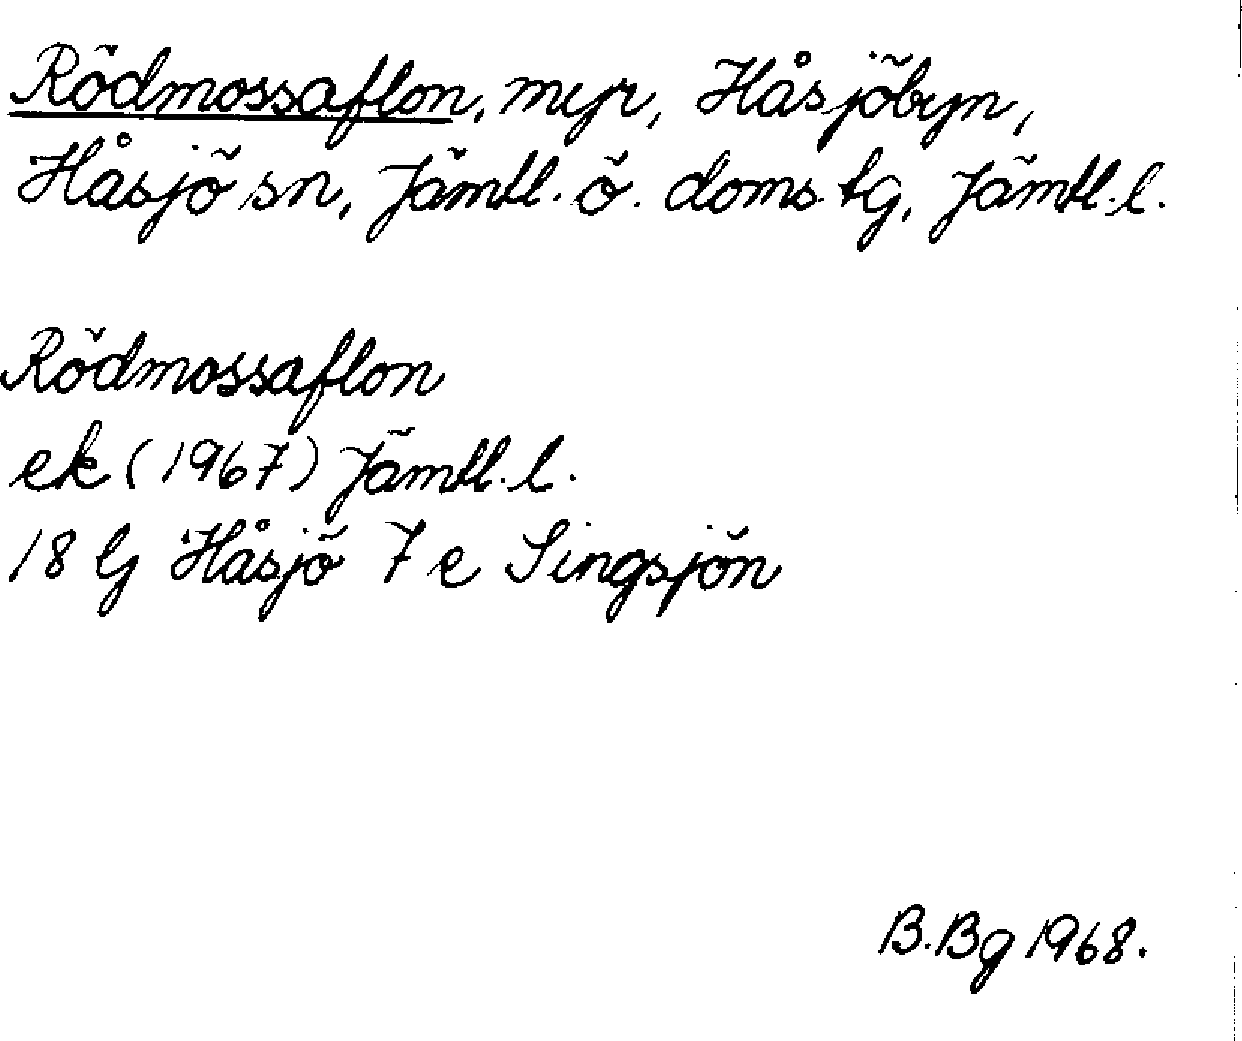 Rödmossaflon, myr, Håsjöbyn,
Håsjö sn, Jämtl. ö. doms. tg, Jämtl. l.
Rödmossaflon
ek (1967) Jämtl. l.
18 G Håsjö 7 e Singsjön
B. Bg 1968.